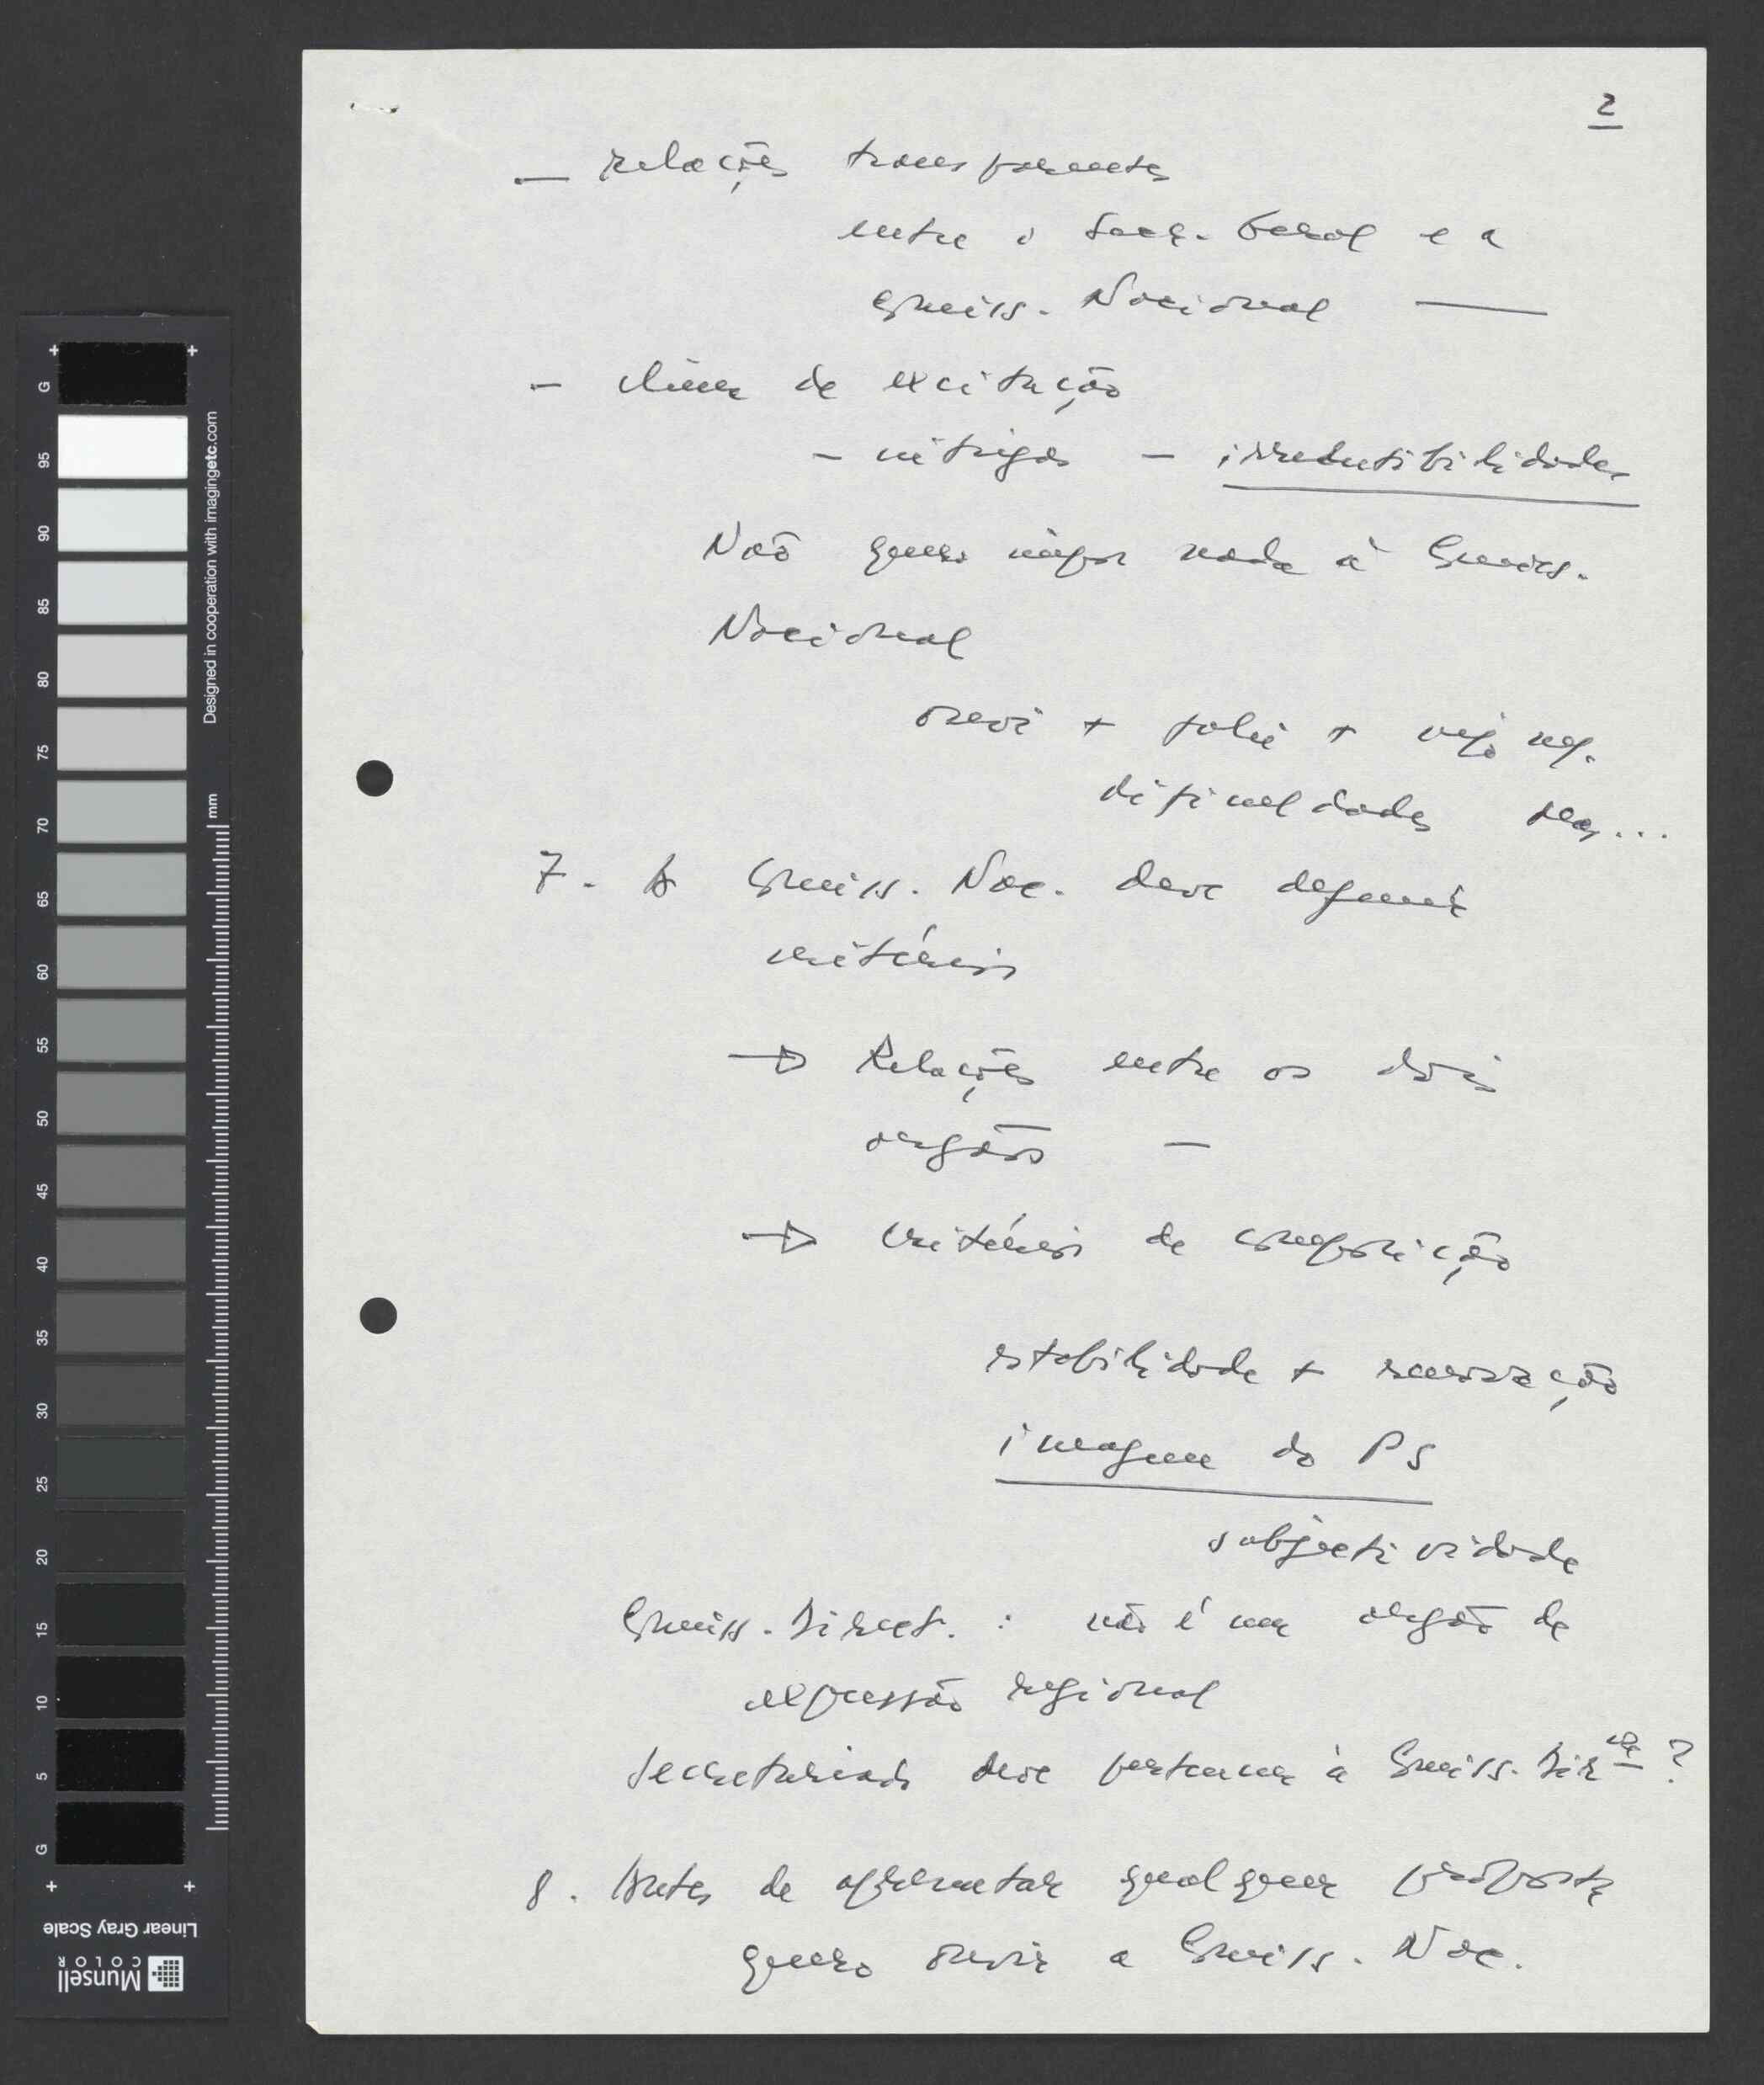 2
— relações transparentes
entre o Secr. Geral e a
Comiss. Nacional —
- clima de excitação
- intrigas - irredutibilidades
Não quero impor nada à Comiss.
Nacional
ouvi + falei + vejo
dificuldades
7. A Comiss. Nac. deve definir
critérios
→ Relações entre os dois
orgãos —
→ Critérios de composição
estabilidade + renovação
imagem do PS
subjectividade
Comiss. Direct. : não é um orgão de
expressão regional
Secretariado deve pertencer à Comiss. Dir ?
8. Antes de apresentar qualquer proposta
quero ouvir a Comiss. Nac.
G 95 90 85 80 75 70 65 60 55 50 45 40 35 30 25 20 15 10 5 G
Designed in cooperation with imagingetc.com
mm
Linear Gray Scale
Munsell
COLOR